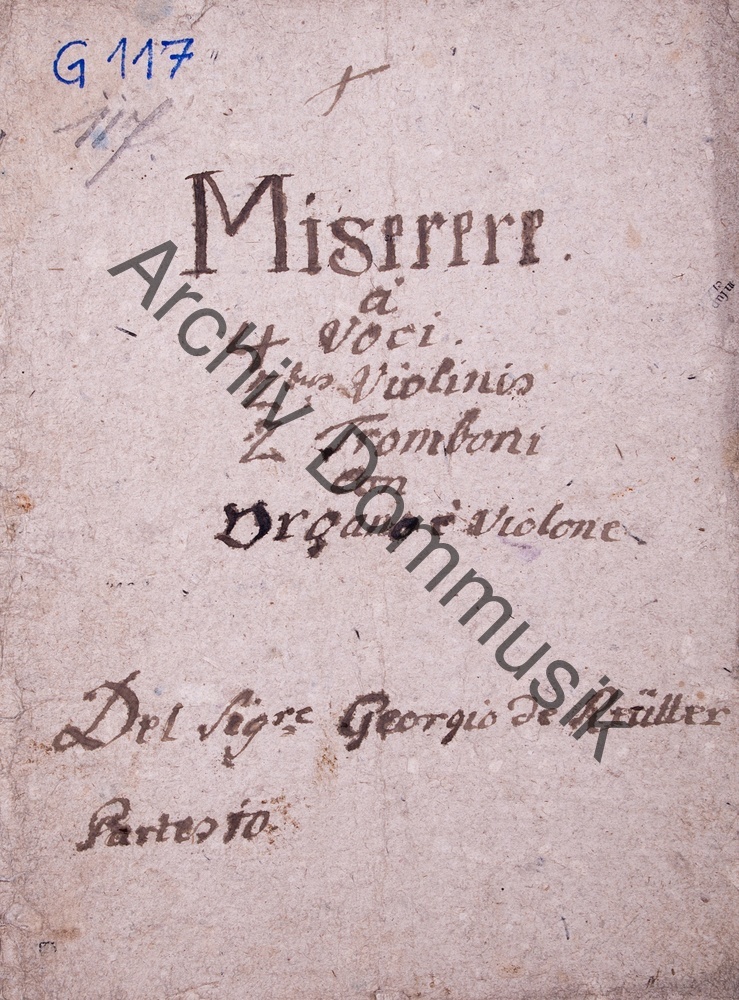 G 117
117.
Miserere.
à
4 Voci.
2bus Violinis
2 Tromboni
con
Organo è Violone
Del Sigre Georgio de Reütter
Partes 10.
Archiv Dommusik